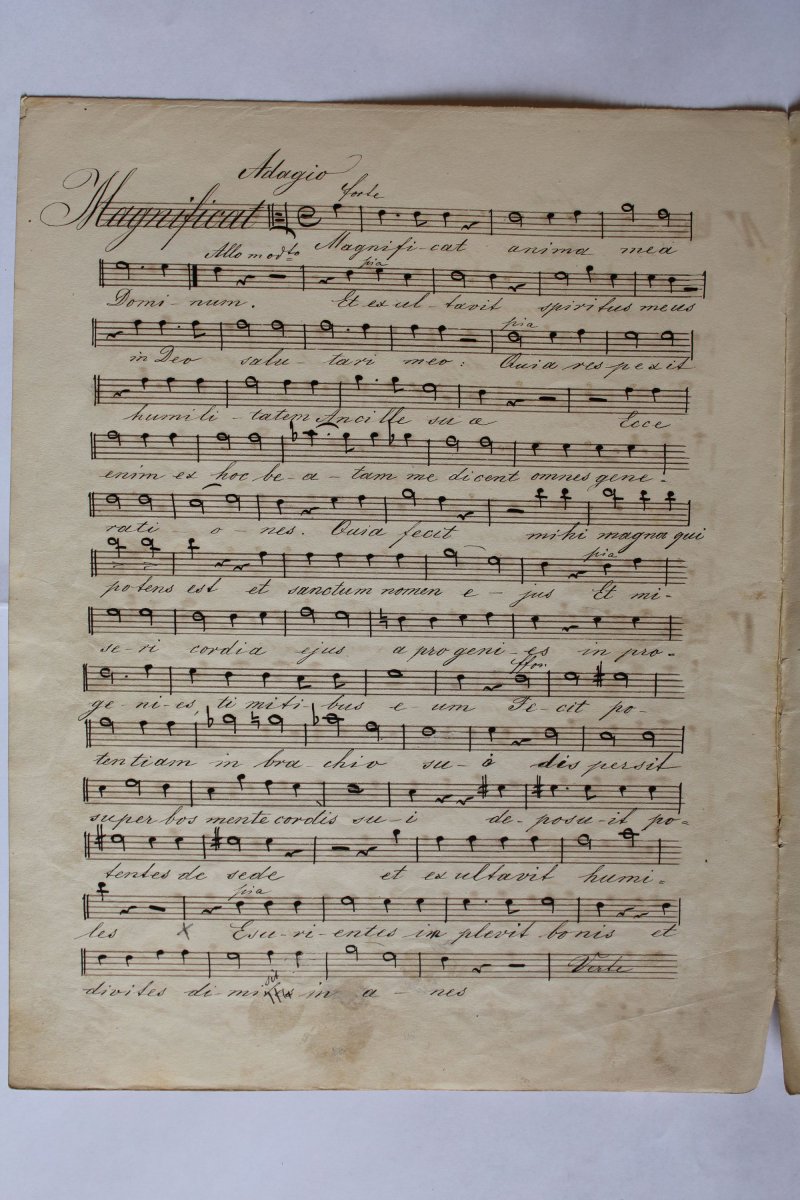 Adagio
Magnificat forte
Magnifi-cat anima mea
Allo modto pia
Domi-num. Et ex ul-tavit spiritus meus
pia
in Deo salu-tari meo: Quia res pexit
humili-tatem Ancille su æ Ecce
enim ex hoc be-a-tam me dicent omnes gene-
rati o-nes. Quia fecit mihi magna qui
pia
potens est et sanctum nomen e-jus Et mi-
se-ri cordia ejus a progeni-es in pro-
ffor.
ge-ni-es, ti miti-bus e-um Fe-cit po-
tentiam in bra-chio su-o dis persit
super bos mente cordis su-i de-posu-it po-
tentes de sede et ex ultavit humi-
pia
les X Esu-ri-entes im plevit bonis et
Verte
divites di-mi sit in a-nes